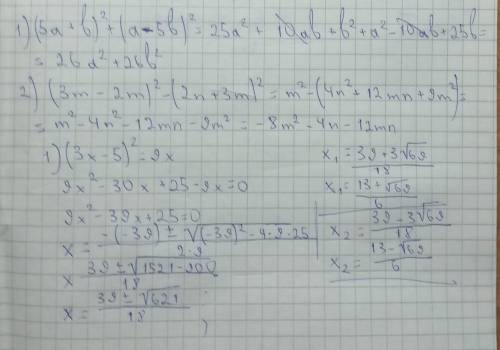 1) (5a + b)² + (a - 5b)² = 25a² + 10ab + b² + a² - 10ab + 25b =
= 26a² + 26b²
2) (3m - 2m)² - (2n + 3m)² = m² - (4n² + 12mn + 9m²) =
= m² - 4n² - 12mn - 9m² = -8m² - 4n - 12mn
1) (3x - 5)² = 9x
9x² - 30x + 25 - 9x = 0
9x² - 39x + 25 = 0
x = -(-39) ± √(-39)² - 4·9·25 / 2·9
x 39 ± √1521 - 900 / 18
x = 39 ± √621 / 18
x₁ = 39 + 3√69 / 18
x₁ = 13 + √69 / 6
x₂ = 39 - 3√69 / 18
x₂ = 13 - √69 / 6